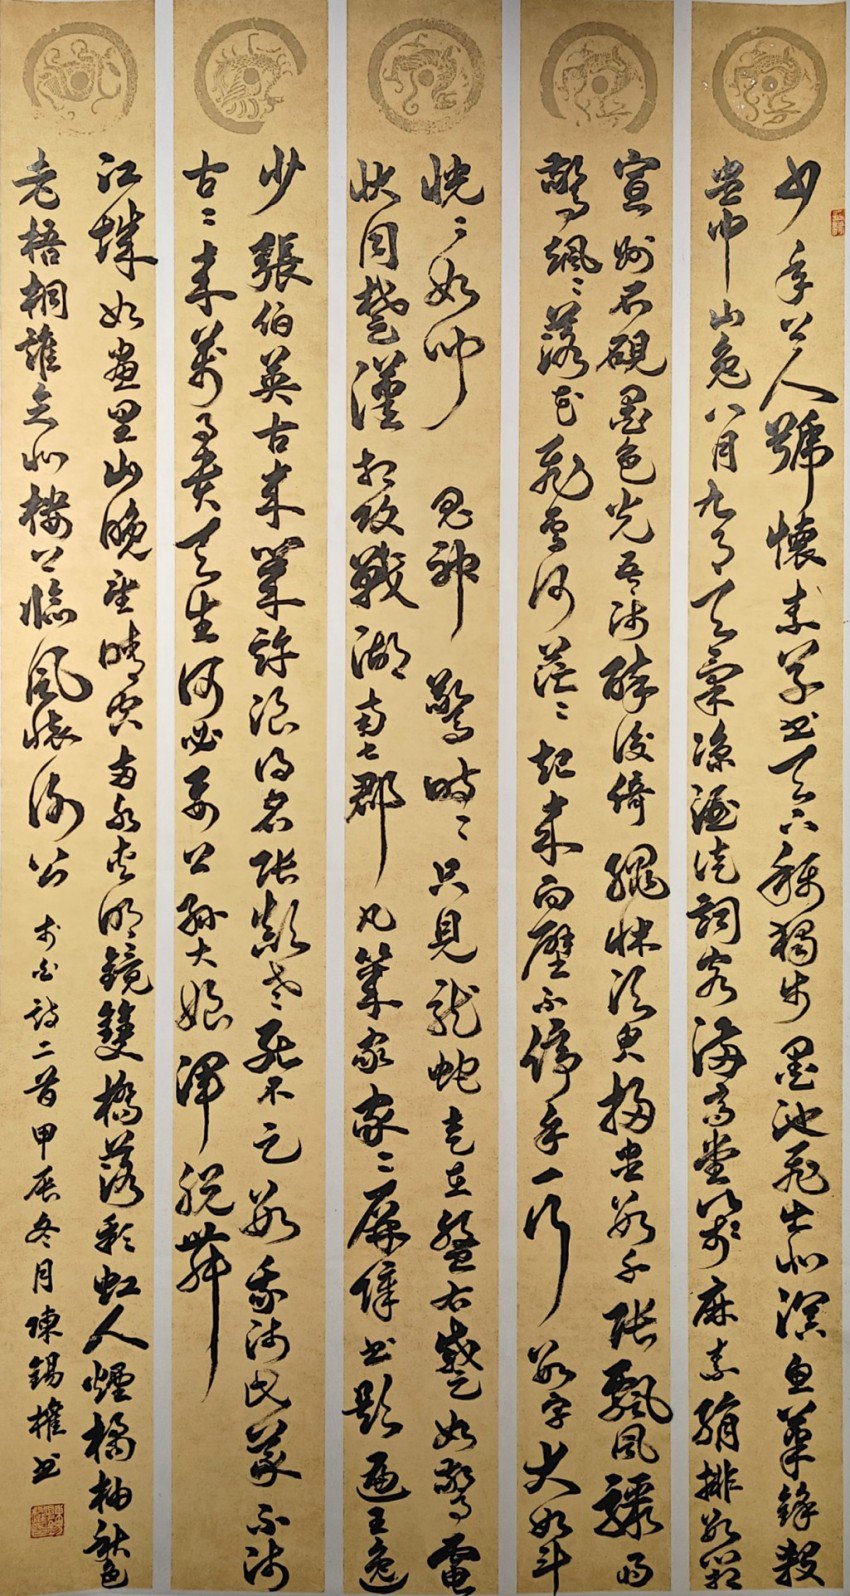 少年上人號懷素草書天下稱獨步墨池飛出北溟魚筆鋒殺
盡中山兔八月九月天氣涼酒徒詞客滿高堂箋麻素絹排數箱
宣州石硯墨色光吾師醉後倚繩牀須臾掃盡數千張飄風驟雨
驚颯〻落花飛雪何茫〻起來向壁不停手一行數字大如斗
怳〻如聞鬼神驚時〻只見龍蛇走左盤右蹙如驚電
狀同楚漢相攻戰湖南七郡凡幾家家〻屏障書題遍王逸
少張伯英古來幾許浪得名張顛老死不足數我師此義不師
古〻來萬事貴天生何必要公孫大娘渾脫舞
江城如畫里山晚望晴空兩水夾明鏡雙橋落彩虹人煙橘柚秋色
老梧桐誰念北樓上臨風懷謝公 李白詩二首甲辰冬月陳錫權書